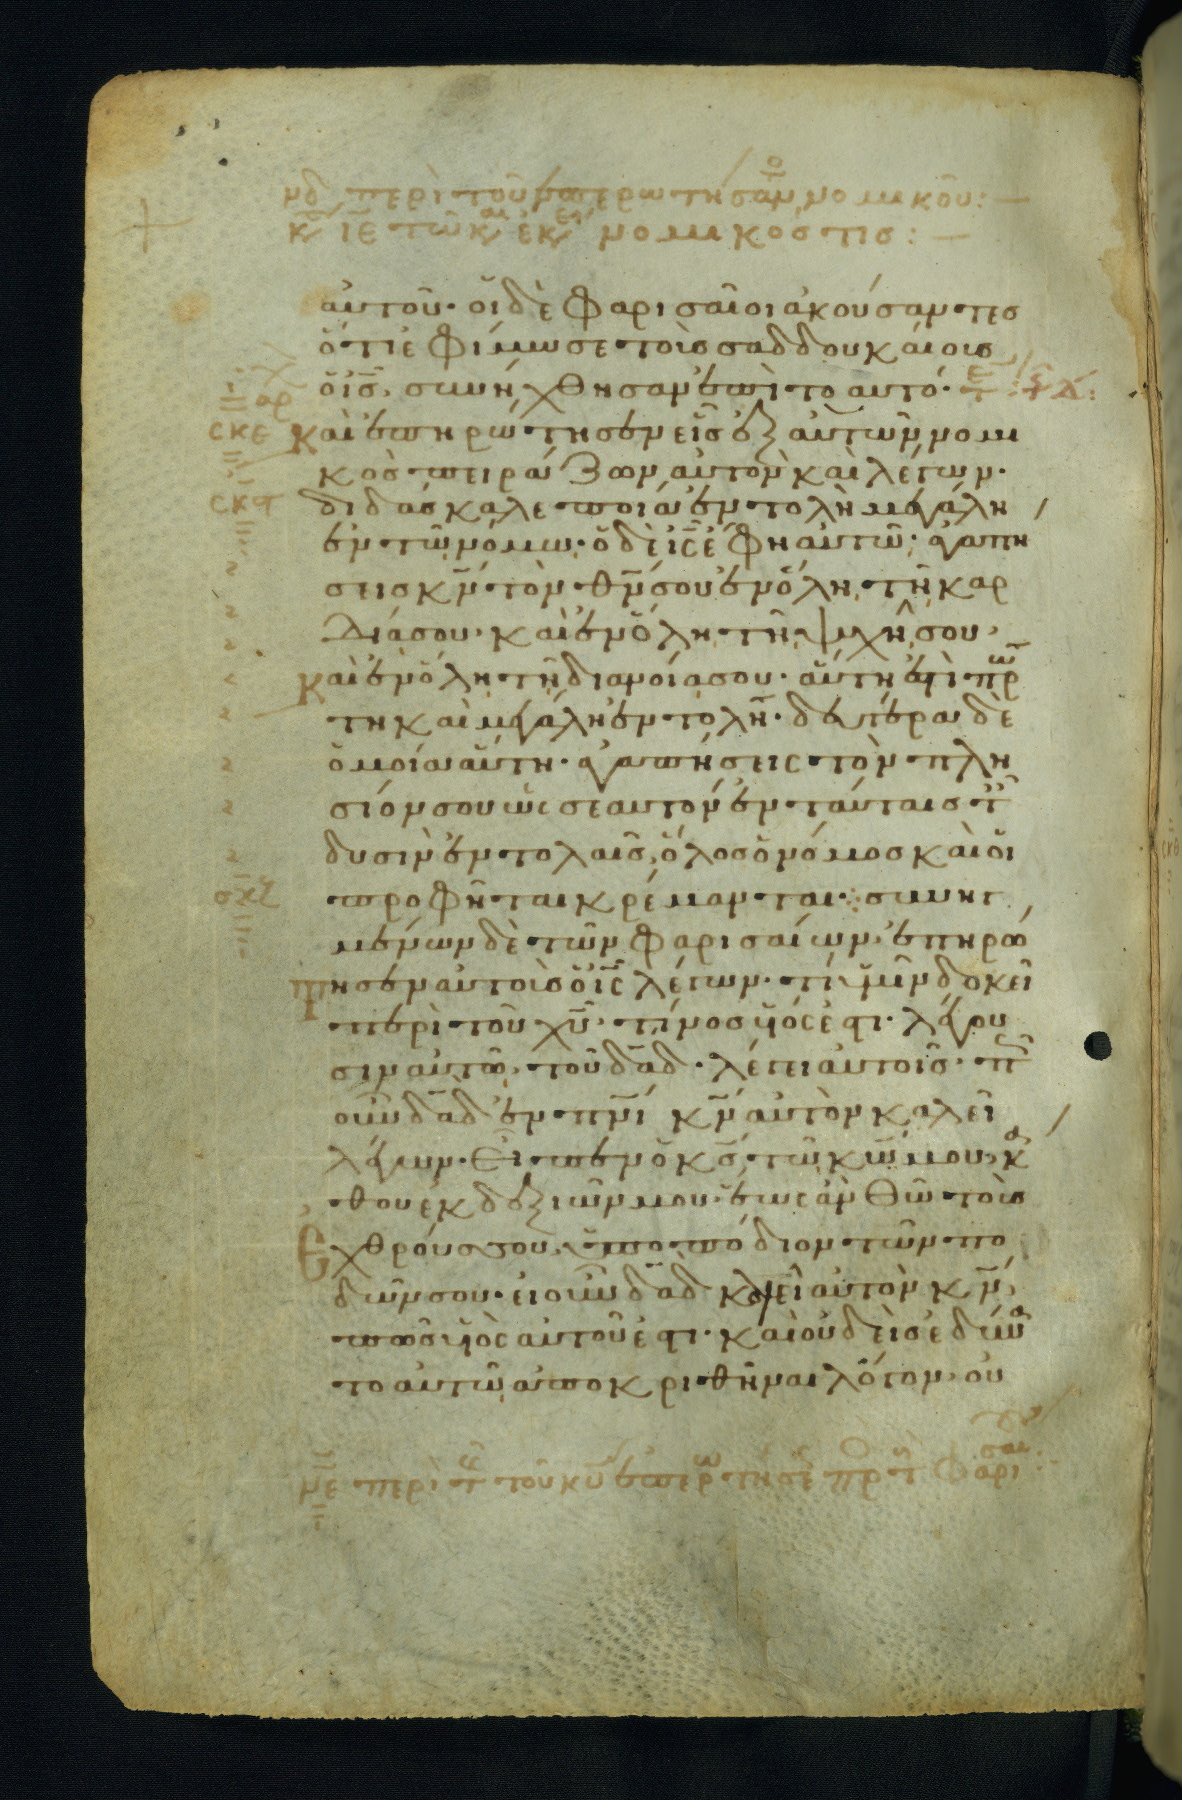 μδ περὶ τοῦ ἐπερωτήσαν νομικοῦ:—
νομικός τις:—
αὐτοῦ· οἱ δὲ Φαρισαῖοι ἀκούσαντες
ὅτι ἐφίμωσε τοὺς σαδδουκαίους
ὁ ις, συνήχθησαν ἐπὶ το αυτό·
σκε Καὶ ἐπηρώτησεν εἷς ἐξ αὐτῶν νομι
κὸς πειράζων αὐτὸν καὶ λέγων·
σκϛ διδάσκαλε ποία ἐντολὴ μεγάλη
ἐν τῶ νόμω· ὁ δὲ ις ἔφη αὐτῶ· ἀγαπή
σεις κν τὸν θν σου ἐν ὅλη τῆ καρ
δία σου· καὶ ἐν ὅλη τῆ ψυχῆ σου·
Καὶ ἐν ὅλη τῆ διανοία σου· αὕτη ἐστὶ πρώ
τη καὶ μεγάλη ἐντολή· δευτέρα δὲ
ὁμοία αὕτη· ἀγαπήσεις τὸν πλη
σίον σου ὡς σεαυτόν ἐν ταύταις τ
δυσὶν ἐντολαῖς, ὅλος ὁ νόμος καὶ οἱ
προφῆται κρέμανται· συνηγ
μένων δὲ τῶν Φαρισαίων ἐπηρώ
τησεν αὐτοὺς ὁ ις λέγων· τί ὑμῖν δοκεῖ
περὶ τοῦ χυ· τίνος υἱός ἐστι· λέγου
σιν αὐτῶ, τοῦ δαδ· λέγει αὐτοῖς· π
οὖν δαδ ἐν πνι κν αὐτὸν καλεῖ
λέγων· Εἶπεν ὁ κς τῶ κω μου, κά
θου ἐκ δεξιῶν μου· ἕως ἂν θῶ τοὺς
Ἐχθρούς σου, ὑποπόδιον τῶν πο
δῶν σου· εἰ οὖν δαδ καλεῖ αὐτὸν κν,
πῶς υἱὸς αὐτοῦ ἐστι· καὶ οὐδεὶς ἐδύνα
το αὐτῶ ἀποκριθῆναι λόγον· οὐ
με περὶ τ τοῦ κυ ἐπερωτήσε πρ τ Φαρισαι